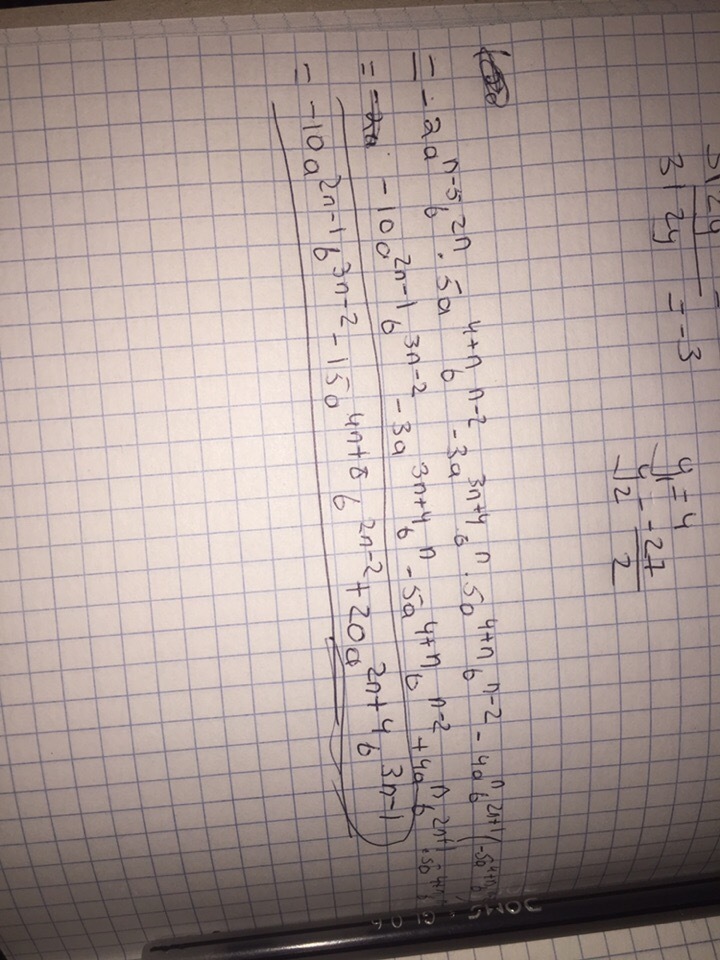 3 | 24 = -3
y = 4
y = -27 / 2
= -2a^{n-5}b^{2n} · 5a^{4+n}b^{n-2} - 3a^{3n+4}b^{n} · 5a^{4+n}b^{n-2} - 4a^{n}b^{2n+1}(-5a^{4+n}
= - 10a^{2n-1}b^{3n-2} - 3a^{3n+4}b^{n} - 5a^{4+n}b^{n-2} + 4a^{n}b^{2n+1} · 5a^{4+n}b
= -10a^{2n-1}b^{3n-2} - 15a^{4n+8}b^{2n-2} + 20a^{2n+4}b^{3n-1}